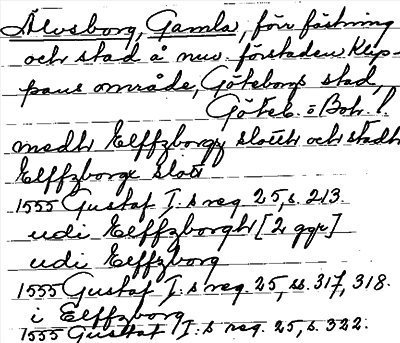 Älvsborg, Gamla, förr fästning
och stad å nuv. förstaden Klip-
pans område, Göteborgs stad,
Göteb. o Boh. l.
medh Elffzborgz slotth och stadh
Elffzborgx slott
1555 Gustaf I:s reg. 25, s. 213.
udi Elffzborgh [2 ggr]
udi Elffzborg
1555 Gustaf I:s reg. 25, ss. 317, 318.
i Elffzborg
1555 Gustaf I:s reg. 25, s. 322.